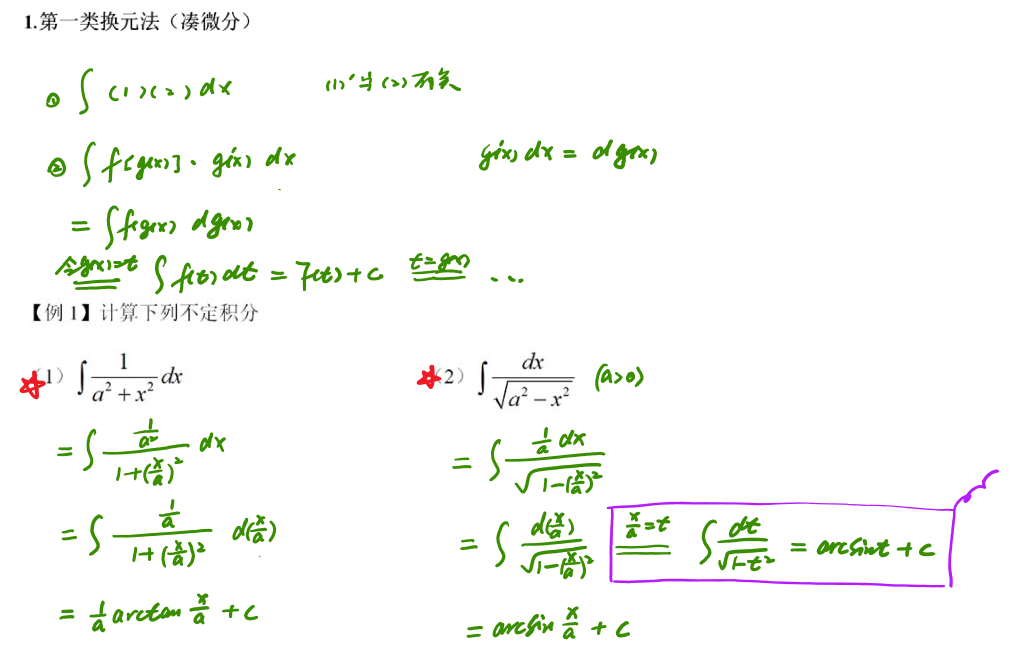 1.第一类换元法（凑微分）
① ∫ (1)(2) dx (1)′与(2)有关
② ∫ f[g(x)]·g′(x) dx g′(x) dx = dg(x)
= ∫ f(g(x)) dg(x)
令g(x)=t ∫ f(t) dt = F(t) + C t=g(x) ...
【例 1】计算下列不定积分
(1) ∫ 1/(a² + x²) dx
= ∫ (1/a²)/(1+(x/a)²) dx
= ∫ (1/a)/(1+(x/a)²) d(x/a)
= 1/a arctan x/a + C
(2) ∫ dx/√(a² − x²) (a>0)
= ∫ (1/a dx)/√(1−(x/a)²)
= ∫ d(x/a)/√(1−(x/a)²) x/a=t ∫ dt/√(1−t²) = arcsint + C
= arcsin x/a + C